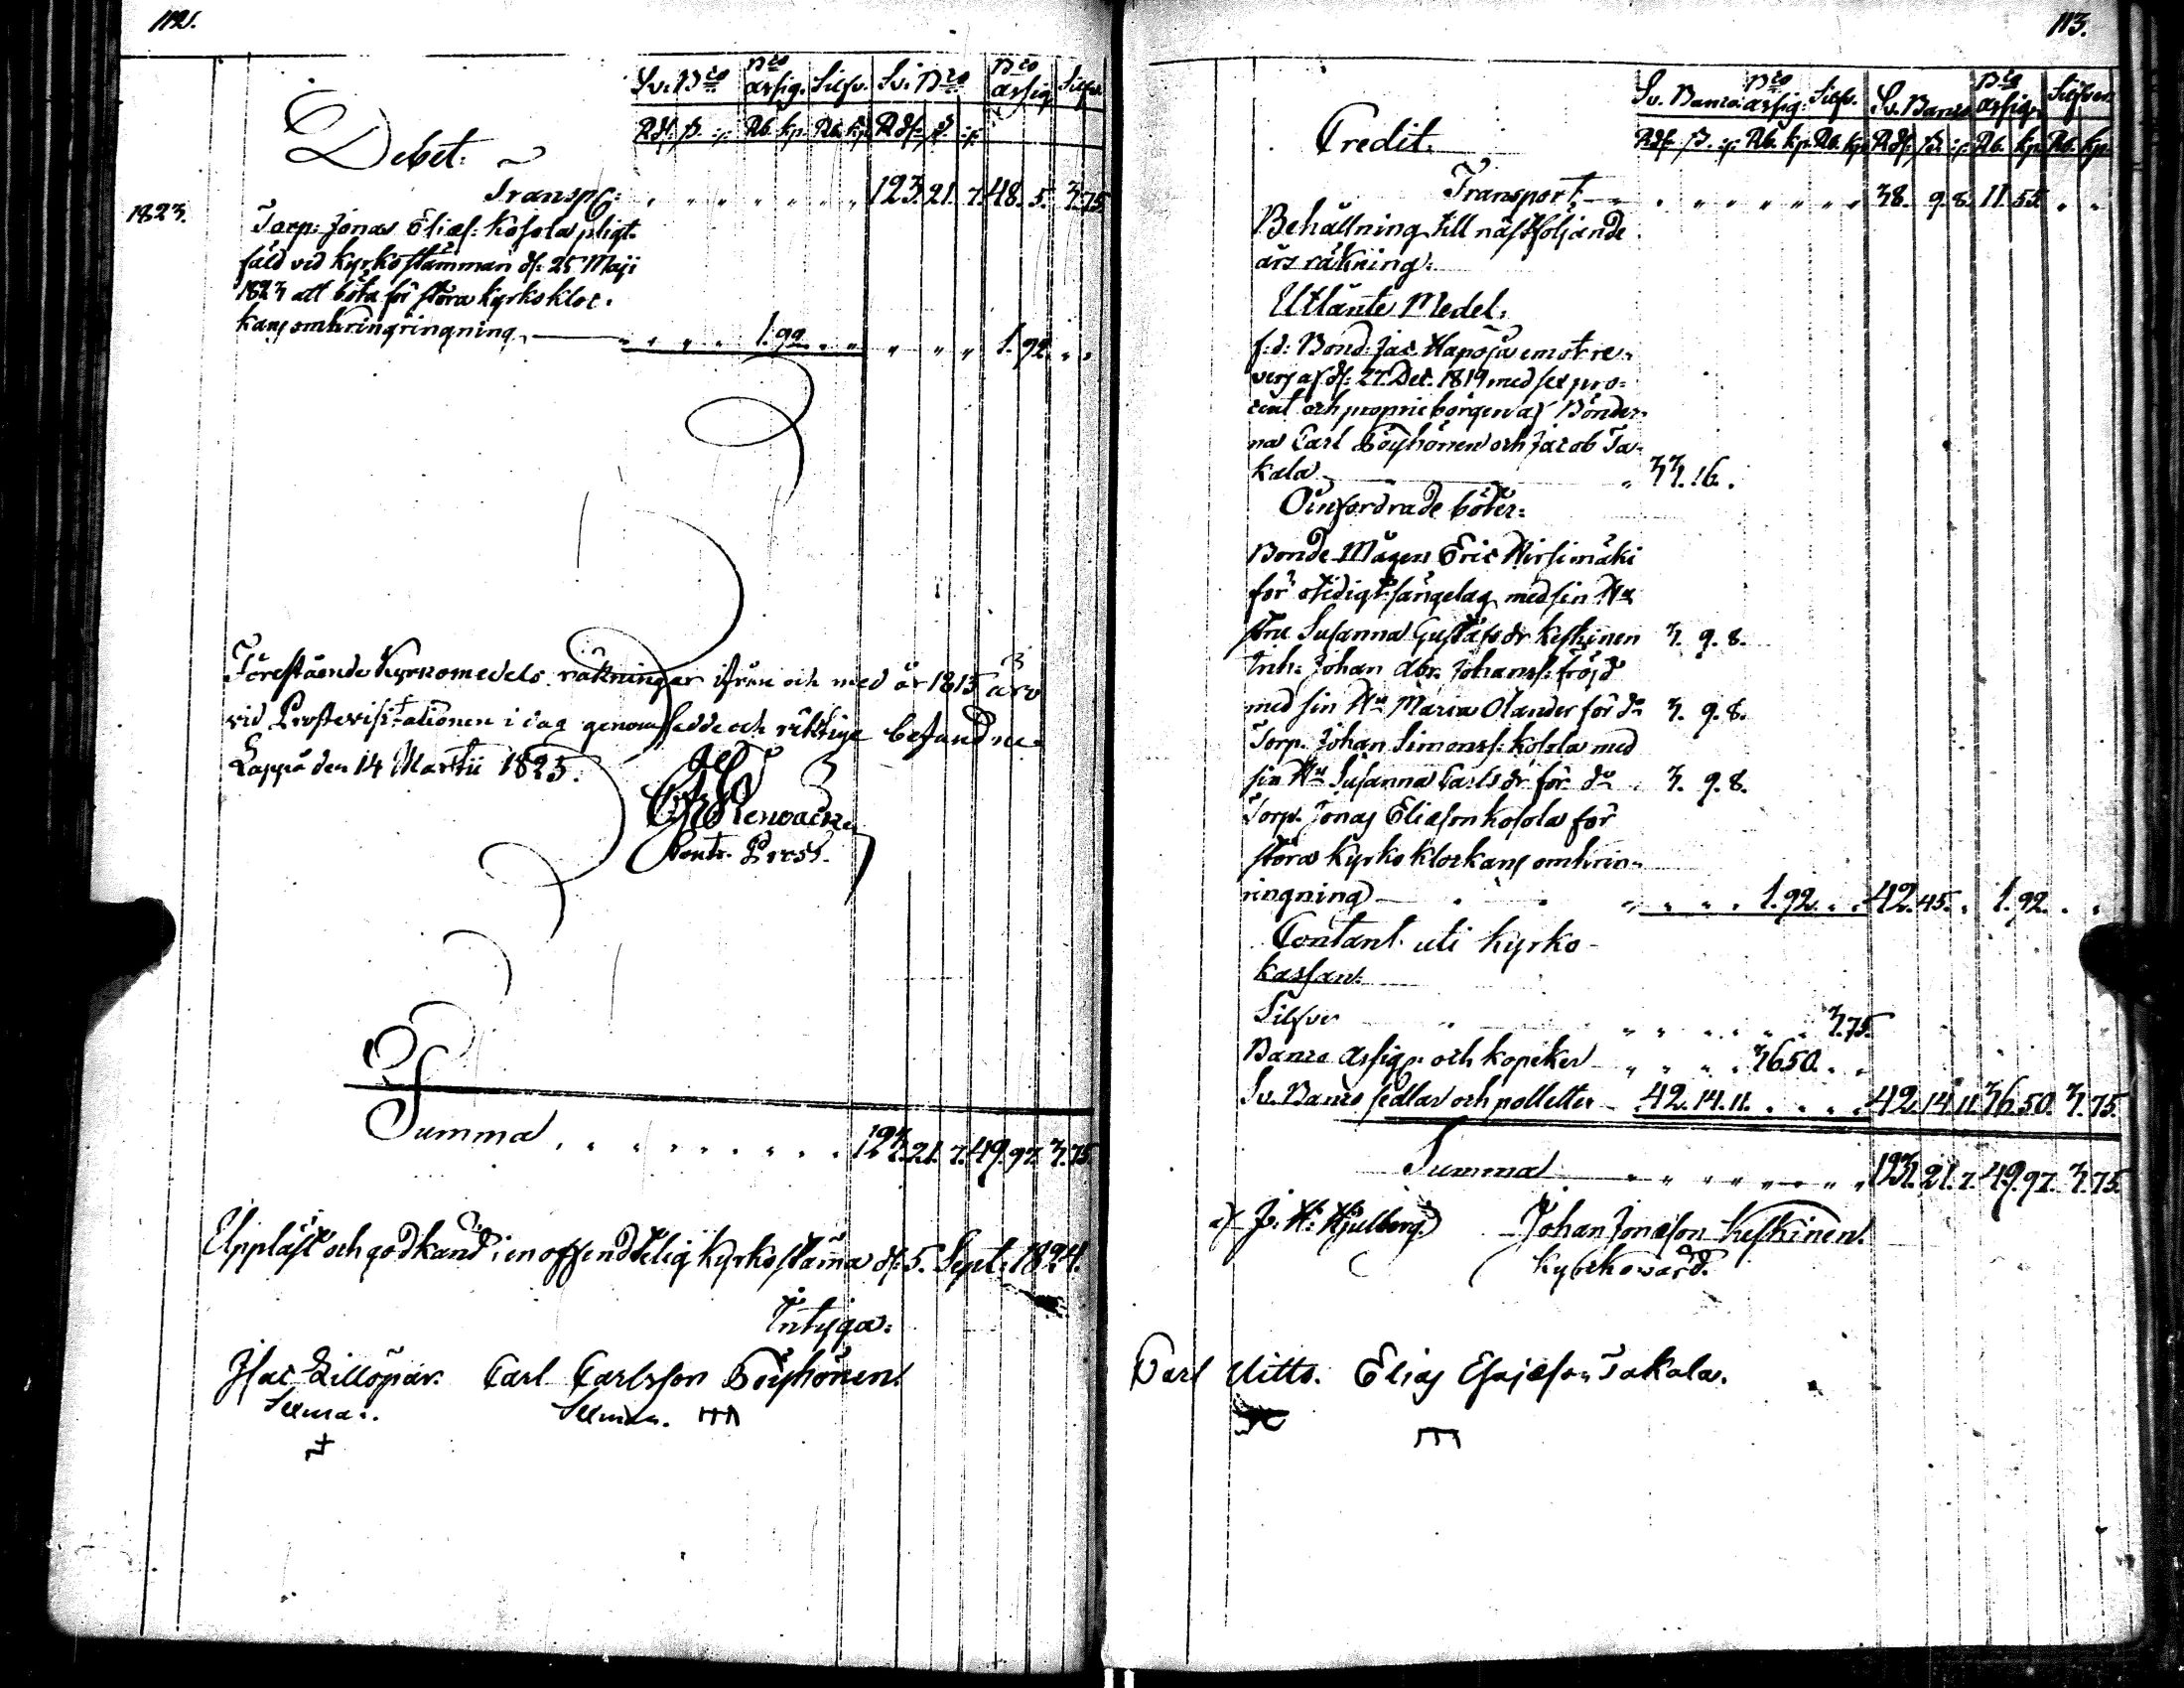 112.
Sv. Bco Bco assig. Silfv. Sv. Bco Bco assig. Silfv.
Rdr ß. rp. Rb. kp. Rb. kp. Rdr ß. rp.
Debet:
Transp: 123. 21. 7. 48. 5. 3. 75.
1823. Torp: Jonas Elias: Kosola pligt-
fäld vid Kyrkostämman d: 25 Maji
1823 att böta för stora kyrkokloc-
kans omkringringning 1. 92. 1. 92.
Föreståande Kyrkomedels räkningar ifrån och med år 1815 äro
vid Prostevisitationen i dag genomsedde och riktige befundne.
Lappo den 14 Martii 1825.
Contr. Prost.
Summa 123. 21. 7. 49. 97. 3. 75.
Uppläst och godkänd i en offendtelig kyrkostäma d: 5. Sept: 1824.
Intyga:
Isac Lillöpar. Carl Carlsson Böyhönen.
Sexman. Sexman.
113.
Sv. Banco Bco assig: Silfv. Sv. Banco Bco assig. Silfver
Rdr ß. rp. Rb. kp. Rb. kp. Rdr ß. rp. Rb. kp. Rb. kp.
Credit.
Transport: 38. 9. 8. 11. 55.
Behållning till nästföljande
års räkning:
Utlänte Medel.
f: d: Bond: Jac. Haapoja emot re-
vers af d: 27. Dec. 1819 med sex pro-
cent och proprieborgen af Bönder-
na Carl Böyhönen och Jacob Ta-
kala 33. 16.
Oinfordrade böter:
Bonde Mågen Eric Hirsimäki
för otidigt sängelag med sin Hu-
stru Susanna Gustafsdr Keskinen 3. 9. 8.
Inh: Johan Abr. Johanss: Fröjd
med sin Hu Maria Olander för do 3. 9. 8.
Torp. Johan Simonss: Kosola med
sin Hu Susanna Carlsdr för do 3. 9. 8.
Torp. Jonas Eliasson Kosola för
stora Kyrko klockans omkrin-
ringning 1. 92. 42. 45. 1. 92.
Contant uti Kyrko-
kassan:
Silfver 3. 75.
Banco Assign: och kopeker 36 50.
Sv. Banco sedlar och polletter 42. 14. 11. 42. 14. 11. 36. 50. 3. 75.
Summa 123. 21. 7. 49. 97. 3. 75.
J: H: Hjulberg. Johan Jonasson Keskinen.
kyrkovärd.
Carl Uitto. Elias Esajasson Takala.